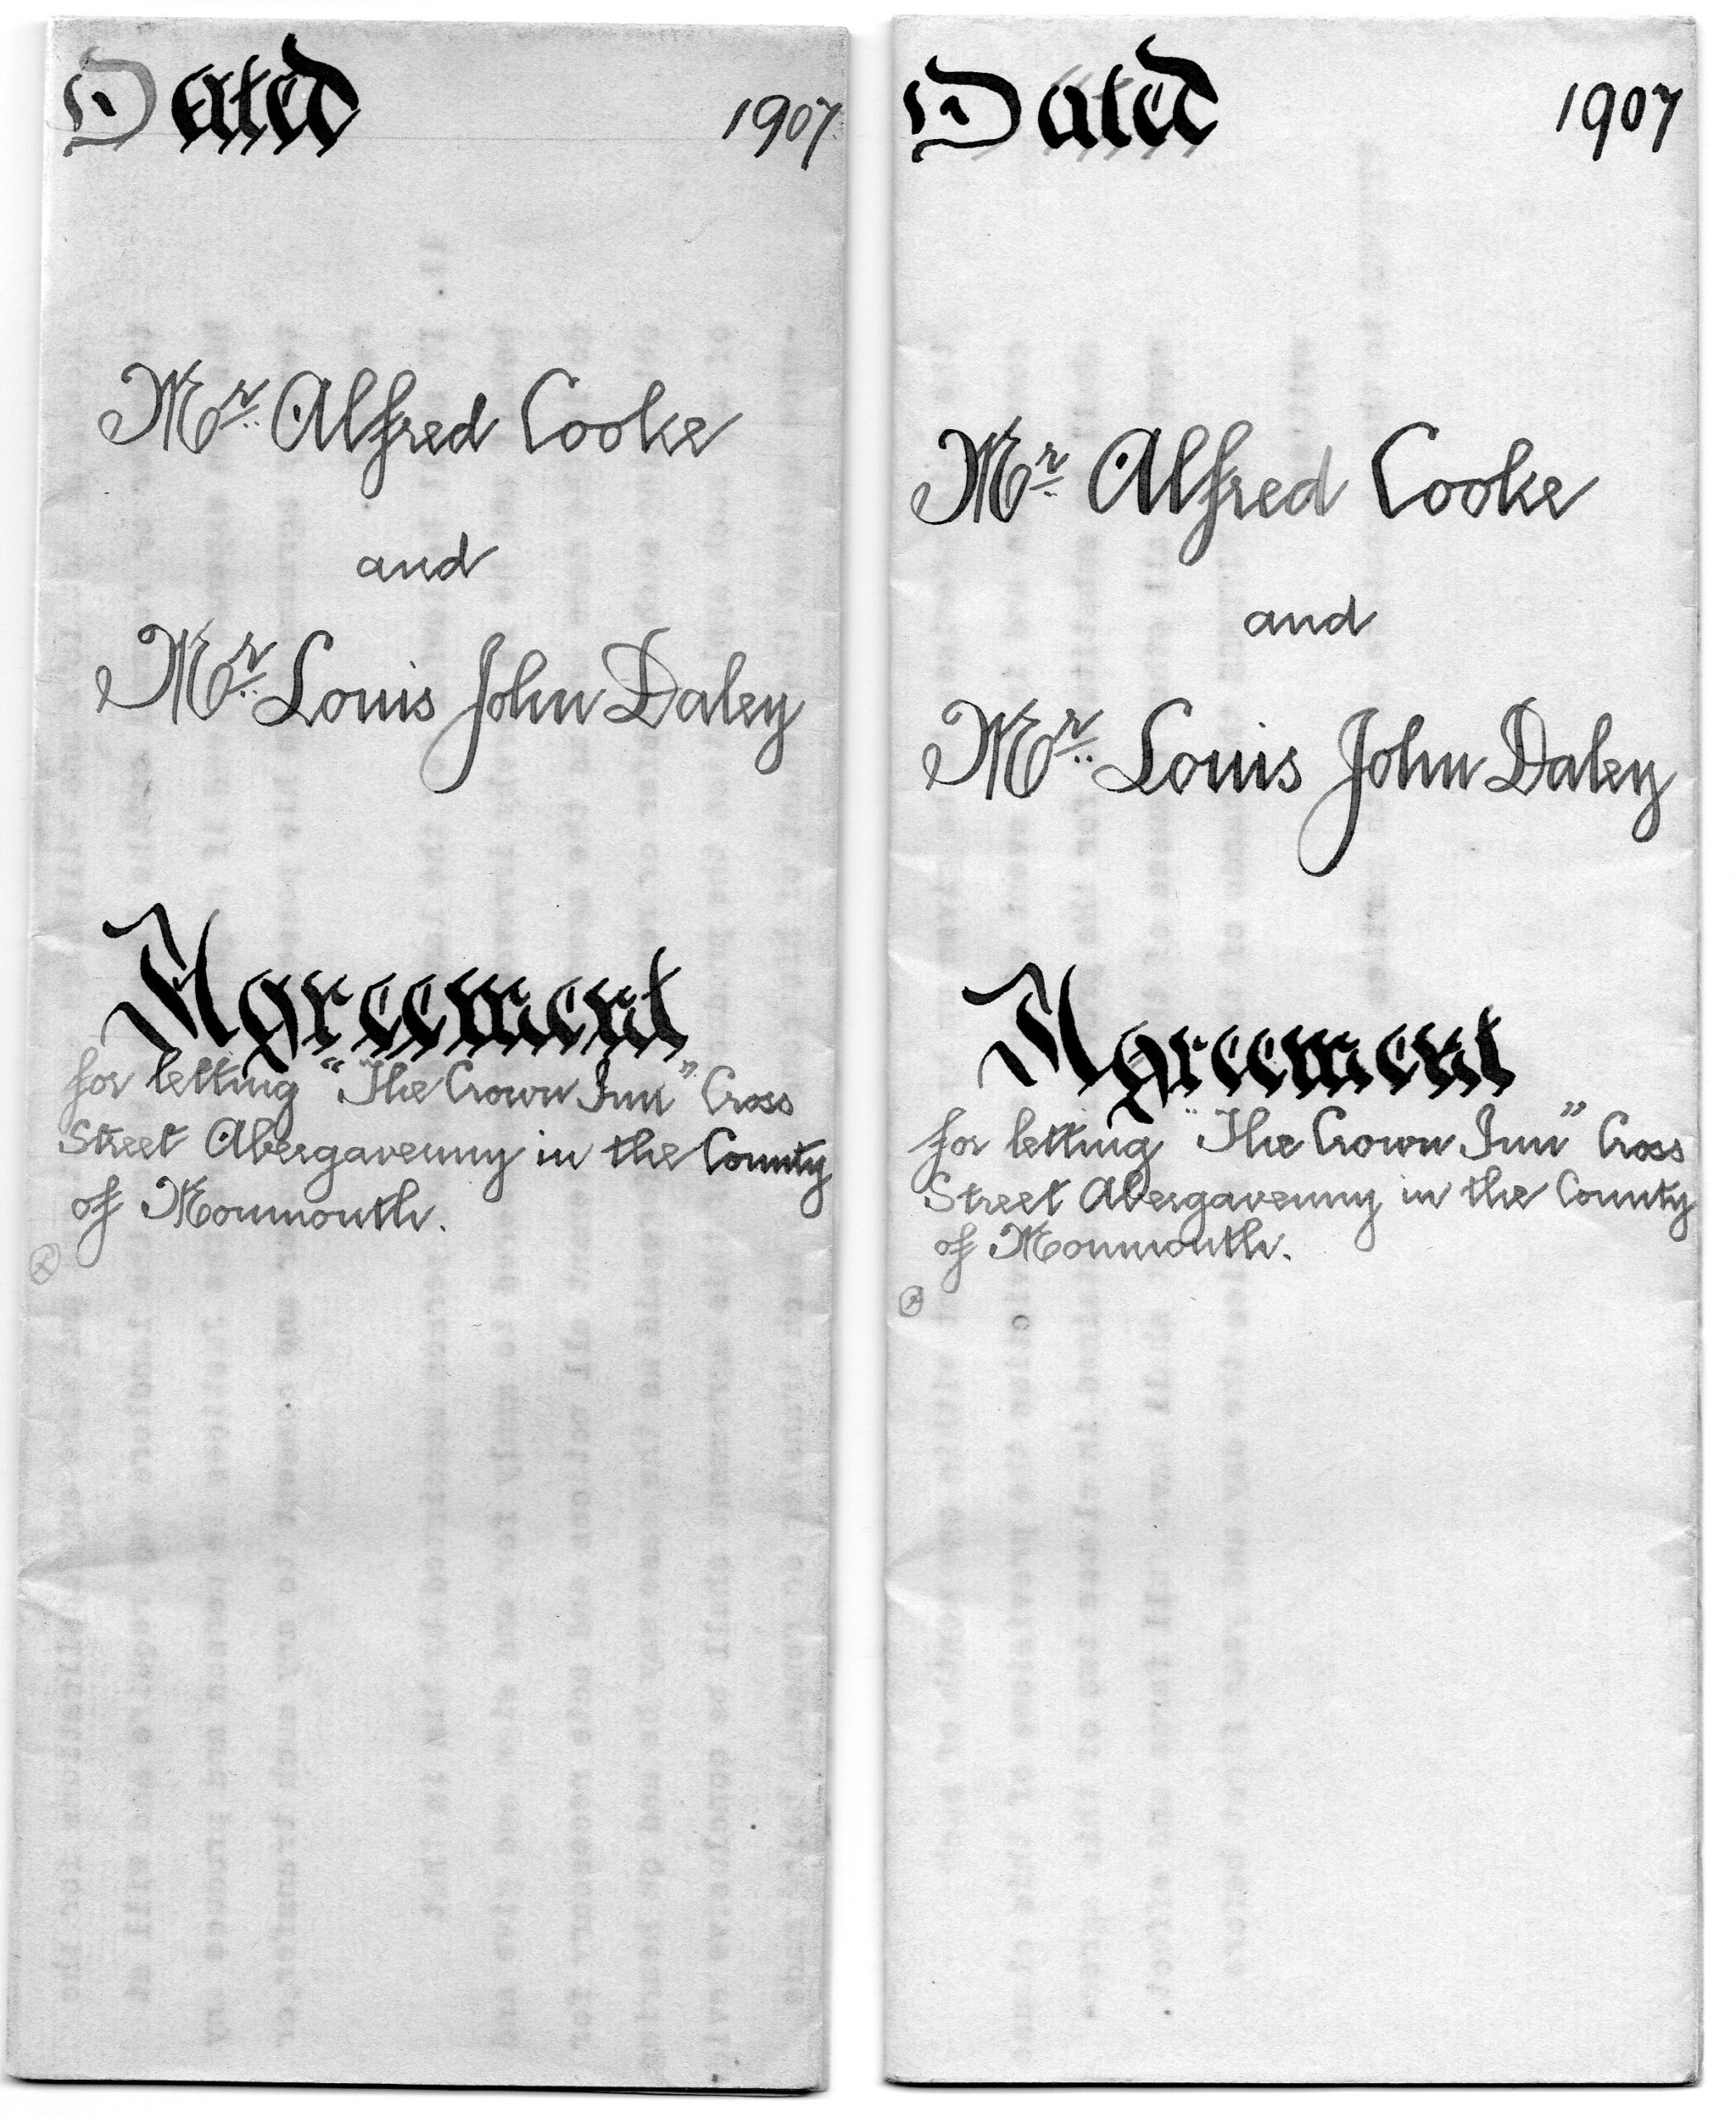 Dated 1907
Mr. Alfred Cooke
and
Mr. Louis John Daley
Agreement
for letting "The Crown Inn" Cross
Street Abergavenny in the County
of Monmouth.
Dated 1907
Mr. Alfred Cooke
and
Mr. Louis John Daley
Agreement
for letting "The Crown Inn" Cross
Street Abergavenny in the County
of Monmouth.